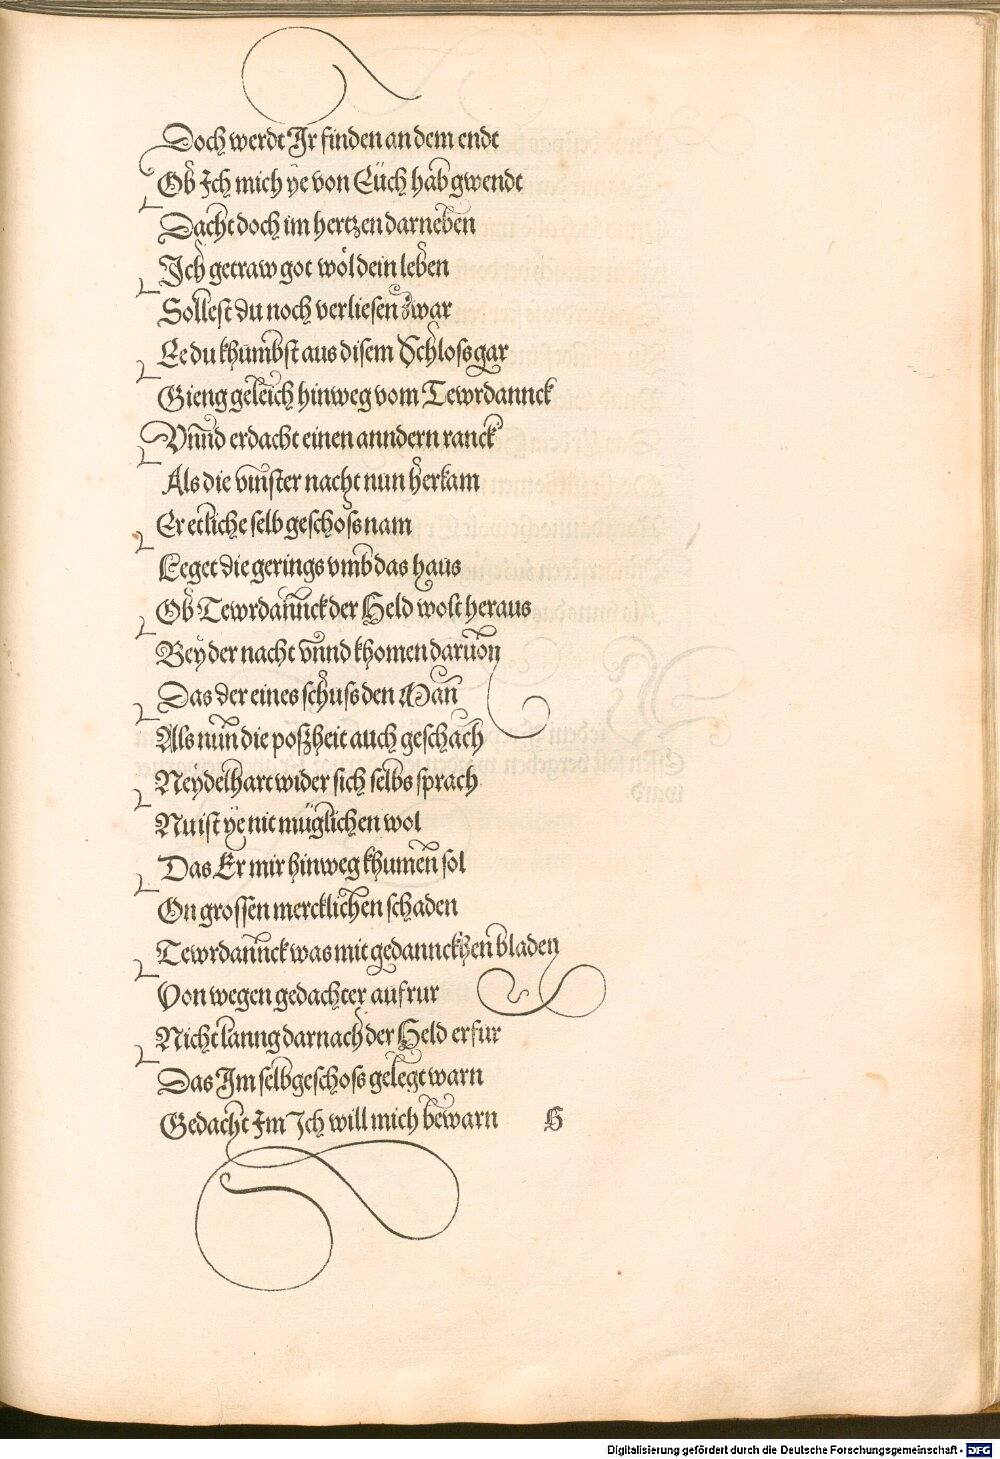 Doch werdt Ir finden an dem endt
Ob Ich mich ye von Eüch hab gwendt
Dacht doch im hertzen darneben
Ich getraw got wöl dein leben
Sollest du noch verliesen zwar
Ee du khumbst aus disem Schloss gar
Gieng geleich hinweg vom Tewrdannck
Vnnd erdacht einen anndern ranck
Als die vinster nacht nun herkam
Er etliche selbgeschoss nam
Leget die gerings vmb das haus
Ob Tewrdannck der Held wolt heraus
Bey der nacht vnnd khomen daruon
Das der eines schuss den Man
Als nun die poßheit auch geschach
Neydelhart wider sich selbs sprach
Nu ist ye nit müglichen wol
Das Er mir hinweg khumen sol
On grossen mercklichen schaden
Tewrdannck was mit gedannckhen bladen
Von wegen gedachter aufrur
Nicht lanng darnach der Held erfur
Das Im selbgeschoss gelegt warn
Gedacht Im Ich will mich bewarn
Digitalisierung gefördert durch die Deutsche Forschungsgemeinschaft - DFG